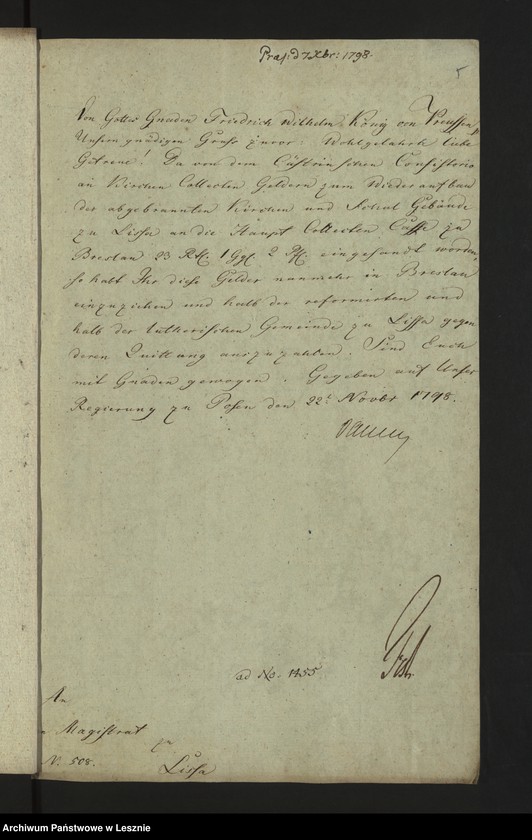 Praes: d 7 Xbr: 1798.
5
Von Gottes Gnaden Friedrich Wilhelm König von Preussen
Unsern gnädigen Gruss zuvor. Wohlgelahrte liebe
Getreue! Da von dem Cüstrinschen Consistorio
an Kirchen Collecten Geldern zum Wiederaufbau
der abgebrannten Kirchen und Schul Gebäude
zu Lissa an die Haupt Collecten Casse zu
Breslau 23 Rtl. 1 Ggl. 2 Pf. eingesandt worden,
so habt Ihr diese Gelder nunmehr in Breslau
einzuziehen und halb der reformirten und
halb der lutherischen Gemeinde zu Lissa gegen
deren Quittung auszuzahlen. Sind Euch
mit Gnaden gewogen. Gegeben auf Unser
Regierung zu Posen den 22t Novbr 1798.
ad No. 1455
An
Magistrat
Lissa
N. 508.
Archiwum Państwowe w Lesznie